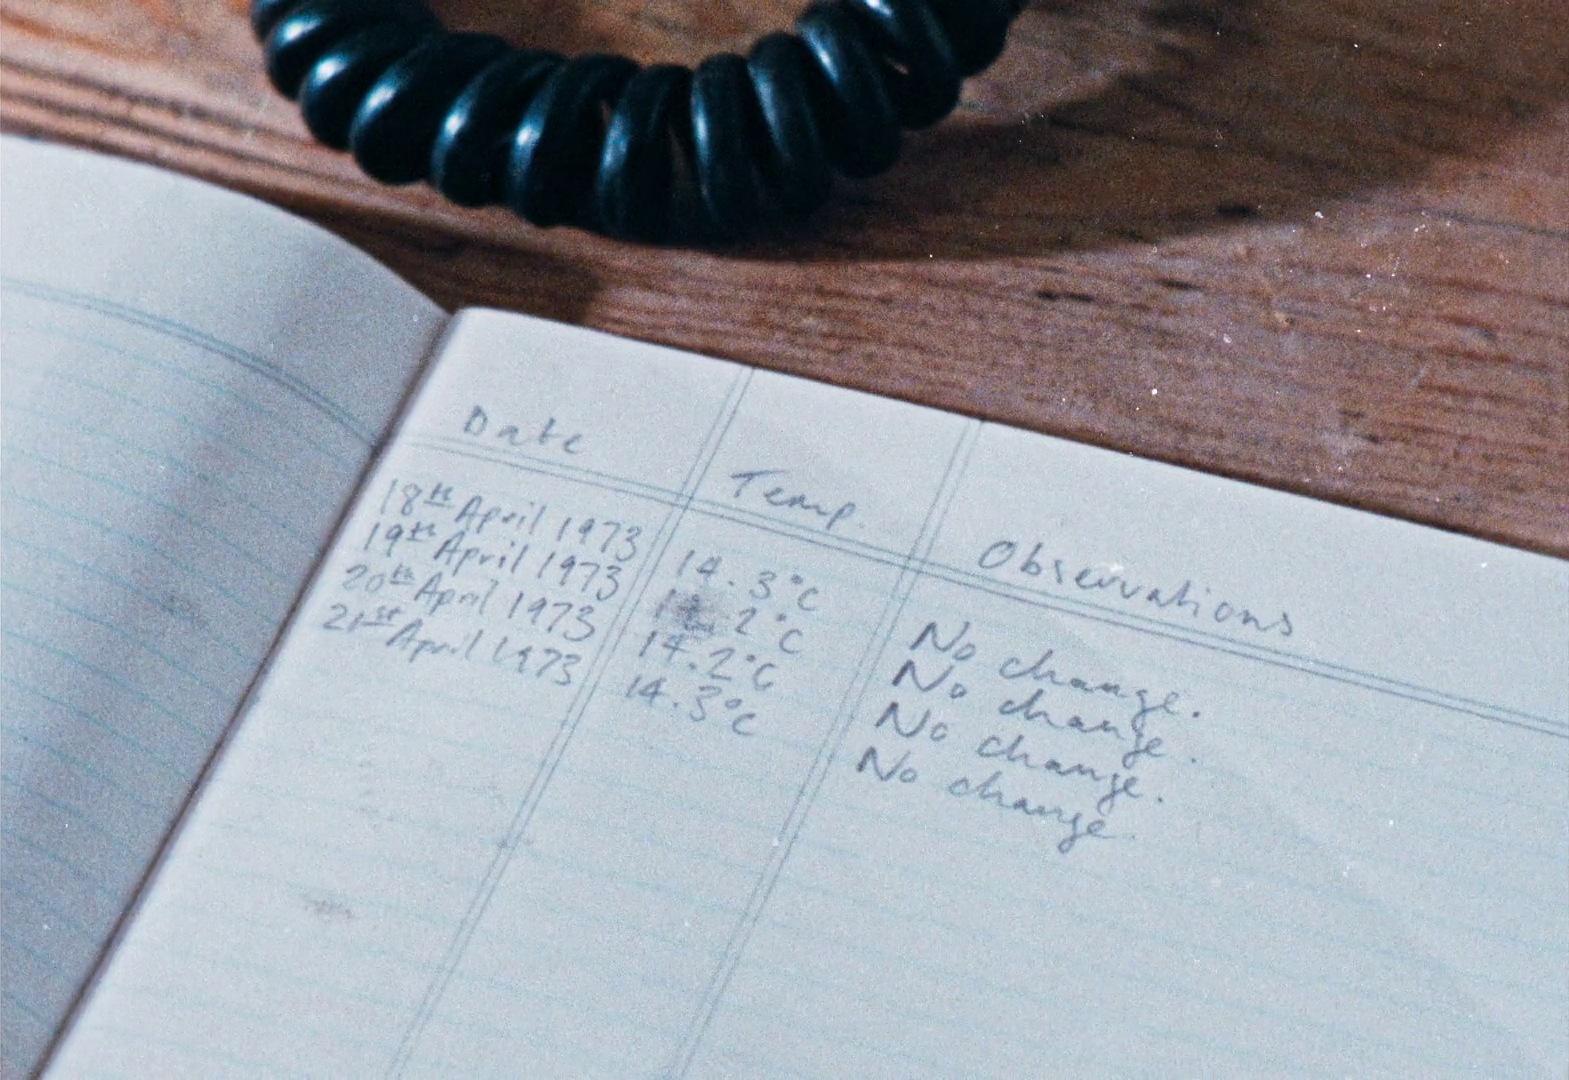 Date Temp. Observations
18th April 1973 14.3°C No change.
19th April 1973 .2°C No change.
20th April 1973 14.2°C No change.
21st April 1973 14.3°C No change.